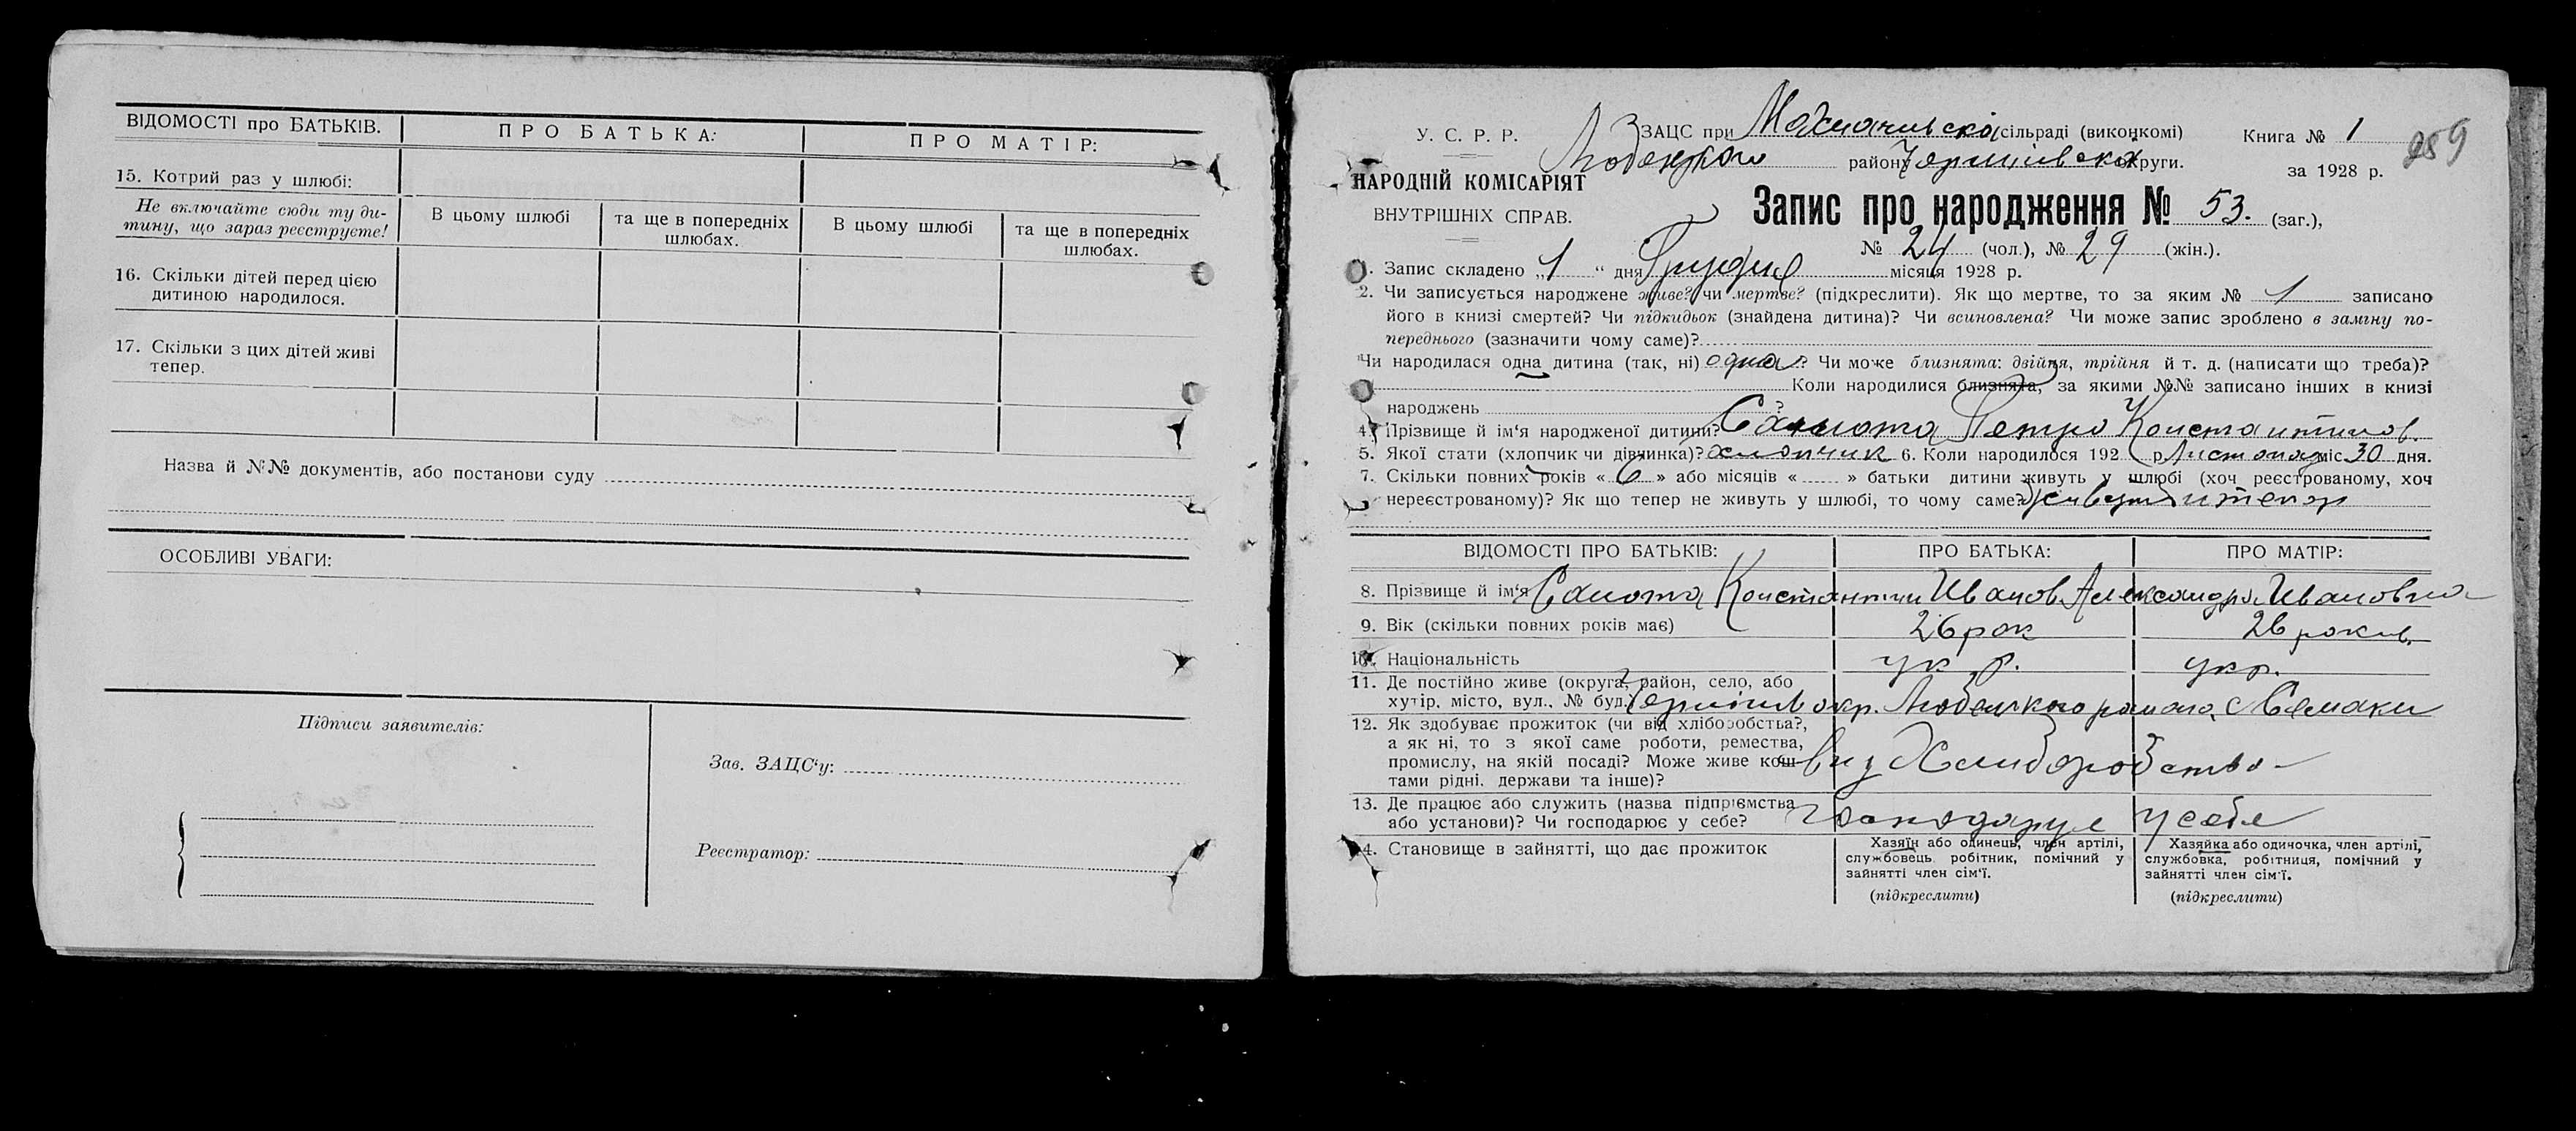 ВІДОМОСТІ про БАТЬКІВ. ПРО БАТЬКА: ПРО МАТІР:
15. Котрий раз у шлюбі:
Не включайте сюди ту ди-
тину, що зараз реєструєте!
В цьому шлюбі та ще в попередніх шлюбах. В цьому шлюбі та ще в попередніх шлюбах.
16. Скільки дітей перед цією
дитиною народилося.
17. Скільки з цих дітей живі
тепер.
Назва й №№ документів, або постанови суду
ОСОБЛИВІ УВАГИ:
Підписи заявителів:
Зав. ЗАЦС'у:
Реєстратор:
У. С. Р. Р.
НАРОДНІЙ КОМІСАРІЯТ
ВНУТРІШНІХ СПРАВ.
ЗАЦС при сільраді (виконкомі) Книга № 1
259
району округи. за 1928 р.
Запис про народження № 53. (заг.),
№ 24 (чол.), № 29 (жін.).
1. Запис складено „1“ дня Грудня місяця 1928 р.
2. Чи записується народжене живе? чи мертве? (підкреслити). Як що мертве, то за яким № записано
його в книзі смертей? Чи підкидьок (знайдена дитина)? Чи всиновлена? Чи може запис зроблено в заміну по-
переднього (зазначити чому саме)?
Чи народилася одна дитина (так, ні) одна? Чи може близнята: двійня, трійня й т. д. (написати що треба)?
Коли народилися близнята, за якими №№ записано інших в книзі
народжень ?
4. Прізвище й ім'я народженої дитини? Самота Петро Константинов.
5. Якої стати (хлопчик чи дівчинка)? хлопчик 6. Коли народилося 192 р. Листопад міс. 30 дня.
7. Скільки повних років «6» або місяців « » батьки дитини живуть у шлюбі (хоч реєстрованому, хоч
нереєстрованому)? Як що тепер не живуть у шлюбі, то чому саме? живуть и тепер
ВІДОМОСТІ ПРО БАТЬКІВ: ПРО БАТЬКА: ПРО МАТІР:
8. Прізвище й ім'я Самота Константин Иванов Александра Ивановна
9. Вік (скільки повних років має) 26 рок 26 років
10. Національність укр. укр.
11. Де постійно живе (округа, район, село, або
хутір, місто, вул., № буд.) окр. с. Семаки
12. Як здобуває прожиток (чи від хліборобства?,
а як ні, то з якої саме роботи, ремества,
промислу, на якій посаді? Може живе кош-
тами рідні, держави та інше)?
вид Хлиборобства
13. Де працює або служить (назва підприємства
або установи)? Чи господарює у себе?
господарує у себе
14. Становище в зайнятті, що дає прожиток
Хазяїн або одинець, член артілі,
службовець, робітник, помічний у
зайнятті член сім'ї.
(підкреслити)
Хазяйка або одиночка, член артілі,
службовка, робітниця, помічний у
зайнятті член сім'ї.
(підкреслити)